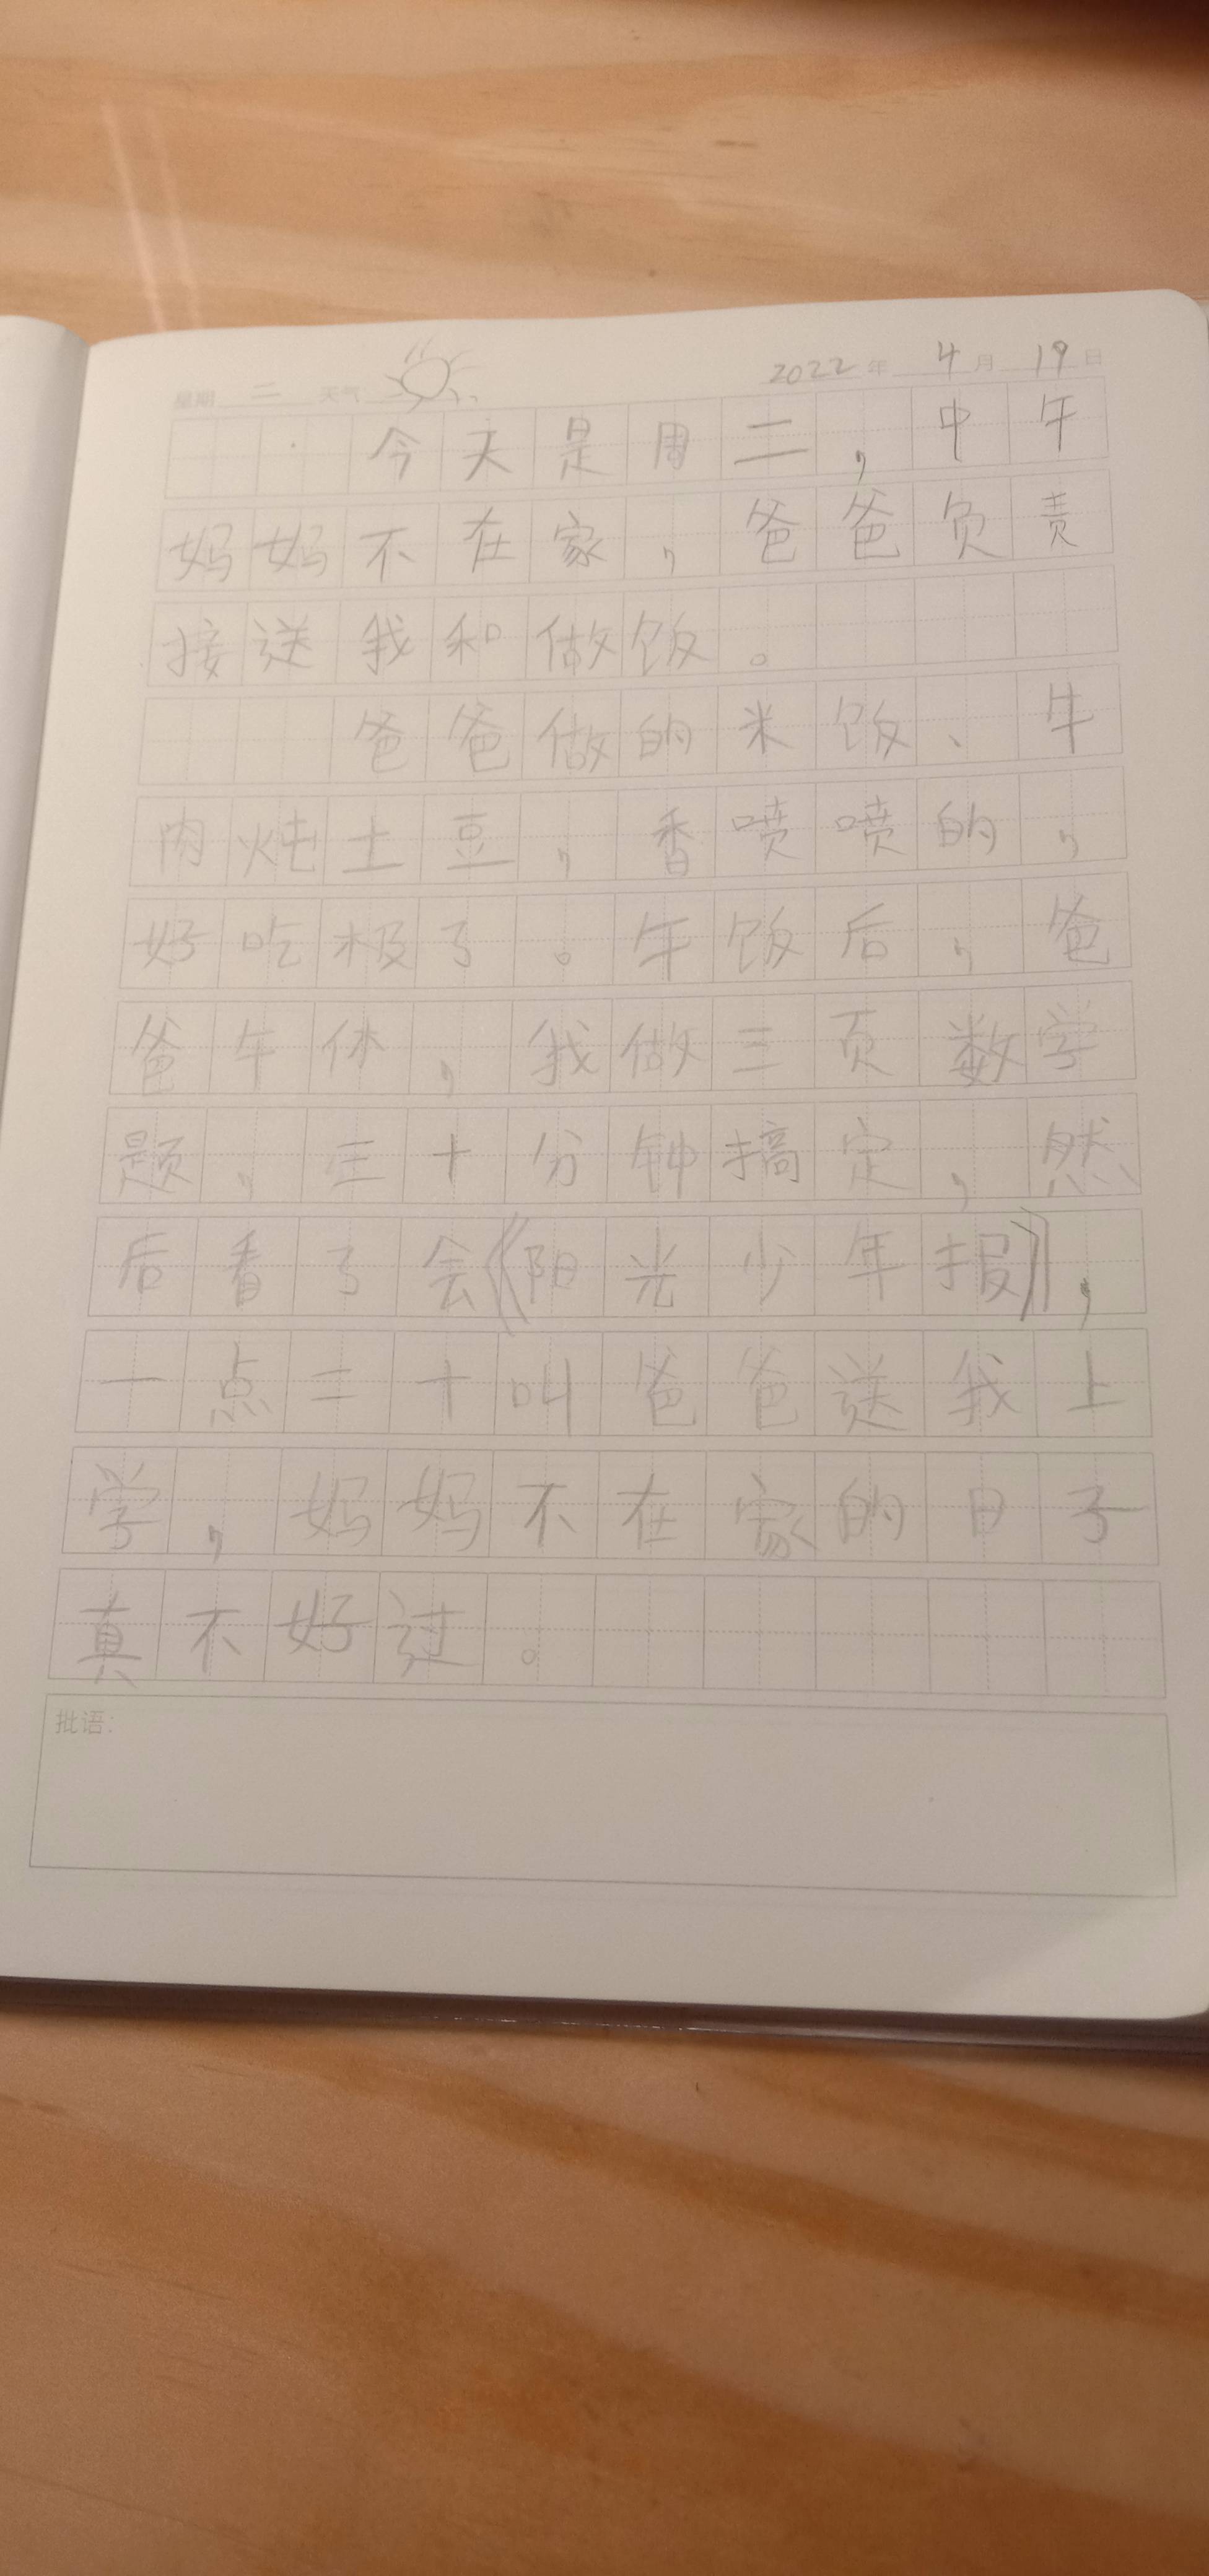 星期 二 天气: 2022 年 4 月 19 日
今天是周二，中午
妈妈不在家，爸爸负责
接送我和做饭。
爸爸做的米饭、牛
肉炖土豆，香喷喷的，
好吃极了。午饭后，爸
爸午休，我做三页数学
题，三十分钟搞定，然
后看了会《阳光少年报》，
一点二十叫爸爸送我上
学，妈妈不在家的日子
真不好过。
批语: